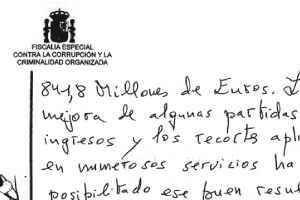 FISCALIA ESPECIAL
CONTRA LA CORRUPCIÓN Y LA
CRIMINALIDAD ORGANIZADA
841,8 Millones de Euros.
mejora de algunas partidas
ingresos y los recortes apli
en numerosos servicios ha
posibilitado ese buen resul